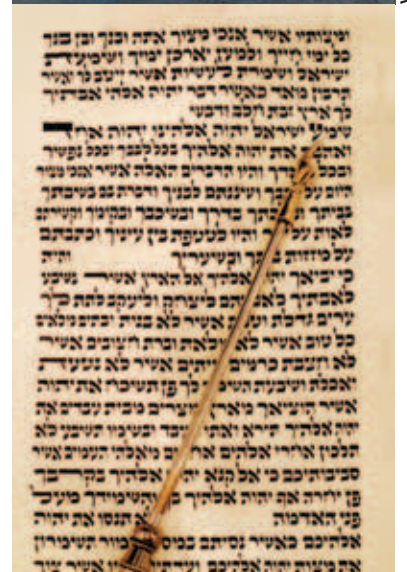 ומצותיו אשר אנכי מצוך אתה ובנך ובן בנך
כל ימי חייך ולמען יארכן ימיך ושמעת
ישראל ושמרת לעשות אשר ייטב לך ואשר
תרבון מאד כאשר דבר יהוה אלהי אבתיך
לך ארץ זבת חלב ודבש
שמע ישראל יהוה אלהינו יהוה
את יהוה אלהיך בכל לבבך ובכל נפשך
ובכל והיו הדברים האלה אשר אנכי מצוך
היום על ושננתם לבניך ודברת בם בשבתך
בביתך בדרך ובשכבך ובקומך וקשרתם
לאות על והיו לטטפת בין עיניך וכתבתם
על מזוזות ובשעריך והיה
כי יביאך אלהיך אל הארץ אשר נשבע
לאבתיך ליצחק וליעקב לתת לך
ערים גדלת אשר לא בנית ובתים מלאים
כל טוב אשר לא מלאת וברת חצובים אשר
לא חצבת כרמים אשר לא נטעת
ואכלת ושבעת לך פן תשכח את יהוה
אשר הוציאך מארץ מבית עבדים את
יהוה אלהיך תירא ואתו ובשמו תשבע לא
תלכון אחרי אלהים מאלהי העמים אשר
סביבותיכם כי אל קנא אלהיך בקרבך
פן יחרה אף יהוה אלהיך והשמידך מעל
פני האדמה תנסו את יהוה
אלהיכם כאשר נסיתם תשמרון
את מצות יהוה אלהיכם אשר